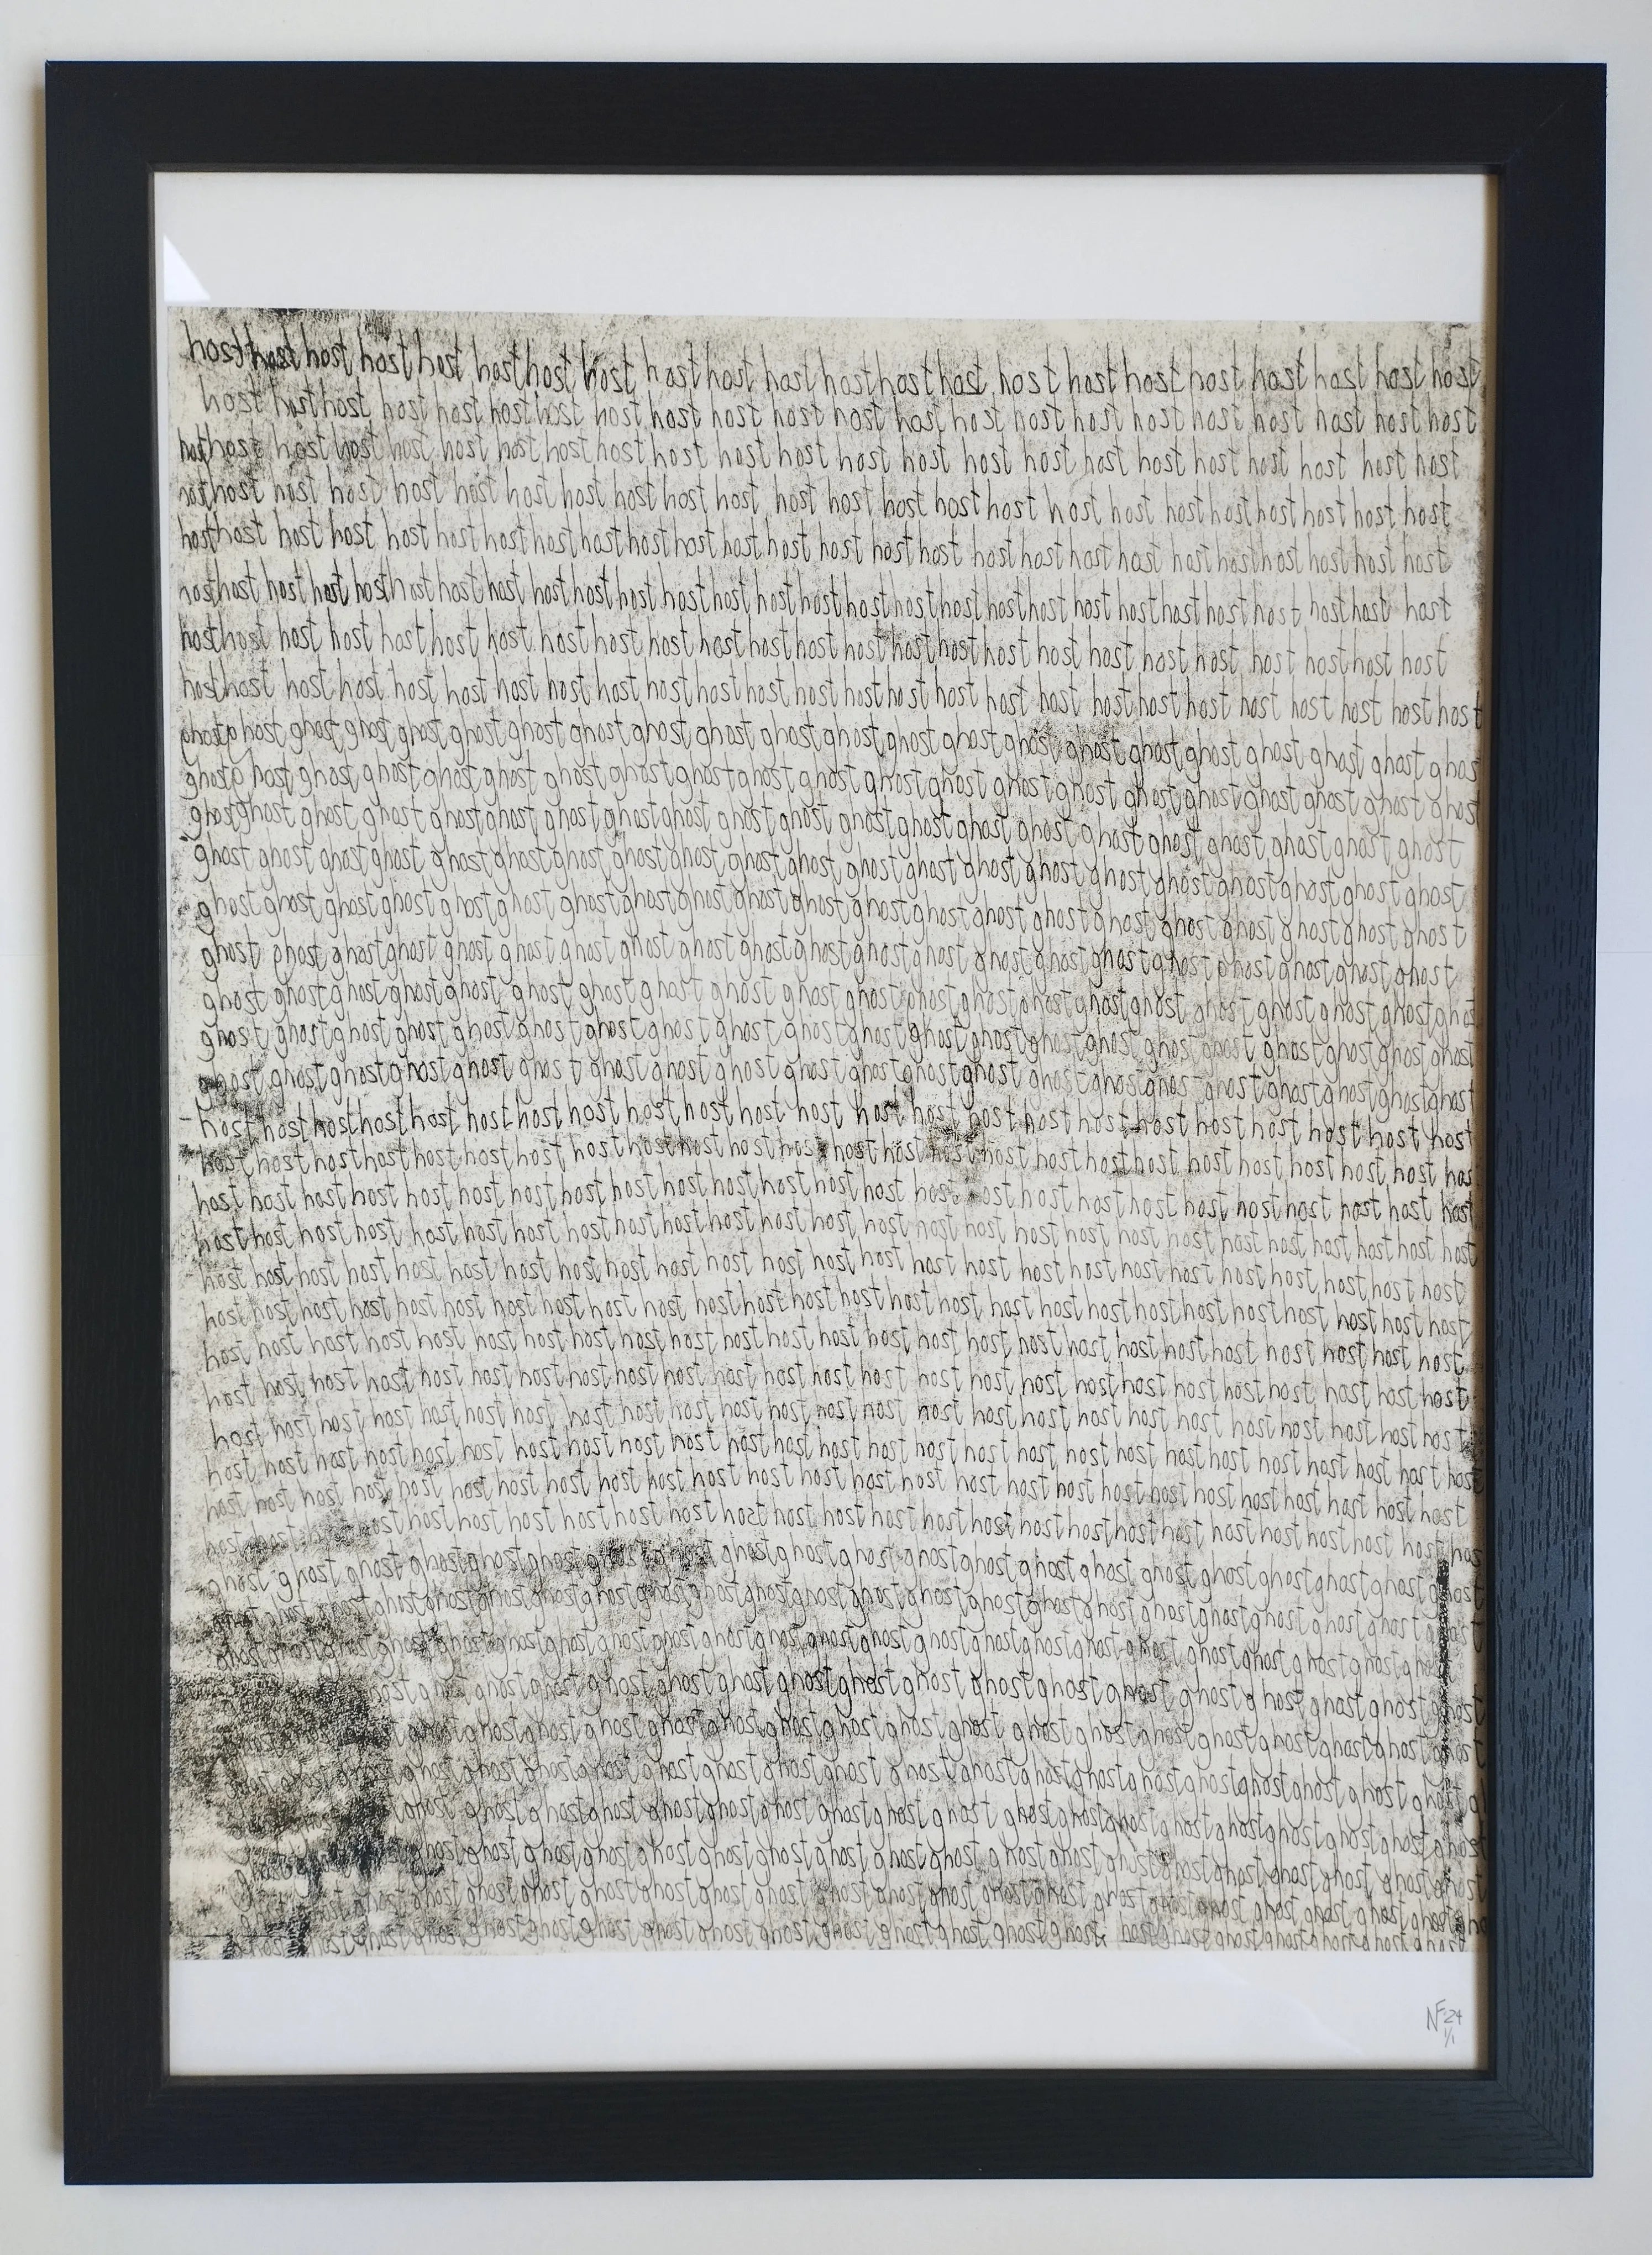 host host host host host host host host host host host host host host host host host host host host host host
host host host host host host host host host host host host host host host host host host host host host host
host host host host host host host host host host host host host host host host host host host host host host host
host host host host host host host host host host host host host host host host host host host host host host host host
host host host host host host host host host host host host host host host host host host host host host host host host host host
host host host host host host host host host host host host host host host host host host host host host host host host host host host host
host host host host host host host host host host host host host host host host host host host host host host host host host
host host host host host host host host host host host host host host host host host host host host host host host host host host
ghost ghost ghost ghost ghost ghost ghost ghost ghost ghost ghost ghost ghost ghost ghost ghost ghost ghost ghost ghost ghost ghost
ghost ghost ghost ghost ghost ghost ghost ghost ghost ghost ghost ghost ghost ghost ghost ghost ghost ghost ghost ghost ghost
ghost ghost ghost ghost ghost ghost ghost ghost ghost ghost ghost ghost ghost ghost ghost ghost ghost ghost ghost ghost ghost
ghost ghost ghost ghost ghost ghost ghost ghost ghost ghost ghost ghost ghost ghost ghost ghost ghost ghost ghost ghost ghost ghost
ghost ghost ghost ghost ghost ghost ghost ghost ghost ghost ghost ghost ghost ghost ghost ghost ghost ghost ghost ghost ghost ghost
ghost ghost ghost ghost ghost ghost ghost ghost ghost ghost ghost ghost ghost ghost ghost ghost ghost ghost ghost ghost ghost
ghost ghost ghost ghost ghost ghost ghost ghost ghost ghost ghost ghost ghost ghost ghost ghost ghost ghost ghost ghost ghost
ghost ghost ghost ghost ghost ghost ghost ghost ghost ghost ghost ghost ghost ghost ghost ghost ghost ghost ghost ghost ghost ghost
ghost ghost ghost ghost ghost ghost ghost ghost ghost ghost ghost ghost ghost ghost ghost ghost ghost ghost ghost ghost ghost ghost
host host host host host host host host host host host host host host host host host host host host host host host host
host host host host host host host host host host host host host host host host host host host host host host host host host
host host host host host host host host host host host host host host host host host host host host host host host host host
host host host host host host host host host host host host host host host host host host host host host host host host host host
host host host host host host host host host host host host host host host host host host host host host host host host host host
host host host host host host host host host host host host host host host host host host host host host host host host host host
host host host host host host host host host host host host host host host host host host host host host host host host host host
host host host host host host host host host host host host host host host host host host host host host host host host host
host host host host host host host host host host host host host host host host host host host host host host host host host
host host host host host host host host host host host host host host host host host host host host host host host host host
host host host host host host host host host host host host host host host host host host host host host host host host host
host host host host host host host host host host host host host host host host host host host host host host host host
ghost ghost ghost ghost ghost ghost ghost ghost ghost ghost ghost ghost ghost ghost ghost ghost ghost ghost ghost ghost ghost
ghost ghost ghost ghost ghost ghost ghost ghost ghost ghost ghost ghost ghost ghost ghost ghost ghost ghost ghost ghost
ghost ghost ghost ghost ghost ghost ghost ghost ghost ghost ghost ghost ghost ghost ghost ghost ghost ghost ghost ghost
ghost ghost ghost ghost ghost ghost ghost ghost ghost ghost ghost ghost ghost ghost ghost ghost ghost ghost
ghost ghost ghost ghost ghost ghost ghost ghost ghost ghost ghost ghost ghost ghost ghost ghost ghost ghost
ghost ghost ghost ghost ghost ghost ghost ghost ghost ghost ghost ghost ghost ghost ghost ghost ghost ghost
ghost ghost ghost ghost ghost ghost ghost ghost ghost ghost ghost ghost ghost ghost ghost ghost ghost ghost
ghost ghost ghost ghost ghost ghost ghost ghost ghost ghost ghost ghost ghost ghost ghost ghost ghost ghost
ghost ghost ghost ghost ghost ghost ghost ghost ghost ghost ghost ghost ghost ghost ghost ghost ghost ghost
ghost ghost ghost ghost ghost ghost ghost ghost ghost ghost ghost ghost ghost ghost ghost ghost ghost ghost
NF '24
1/1